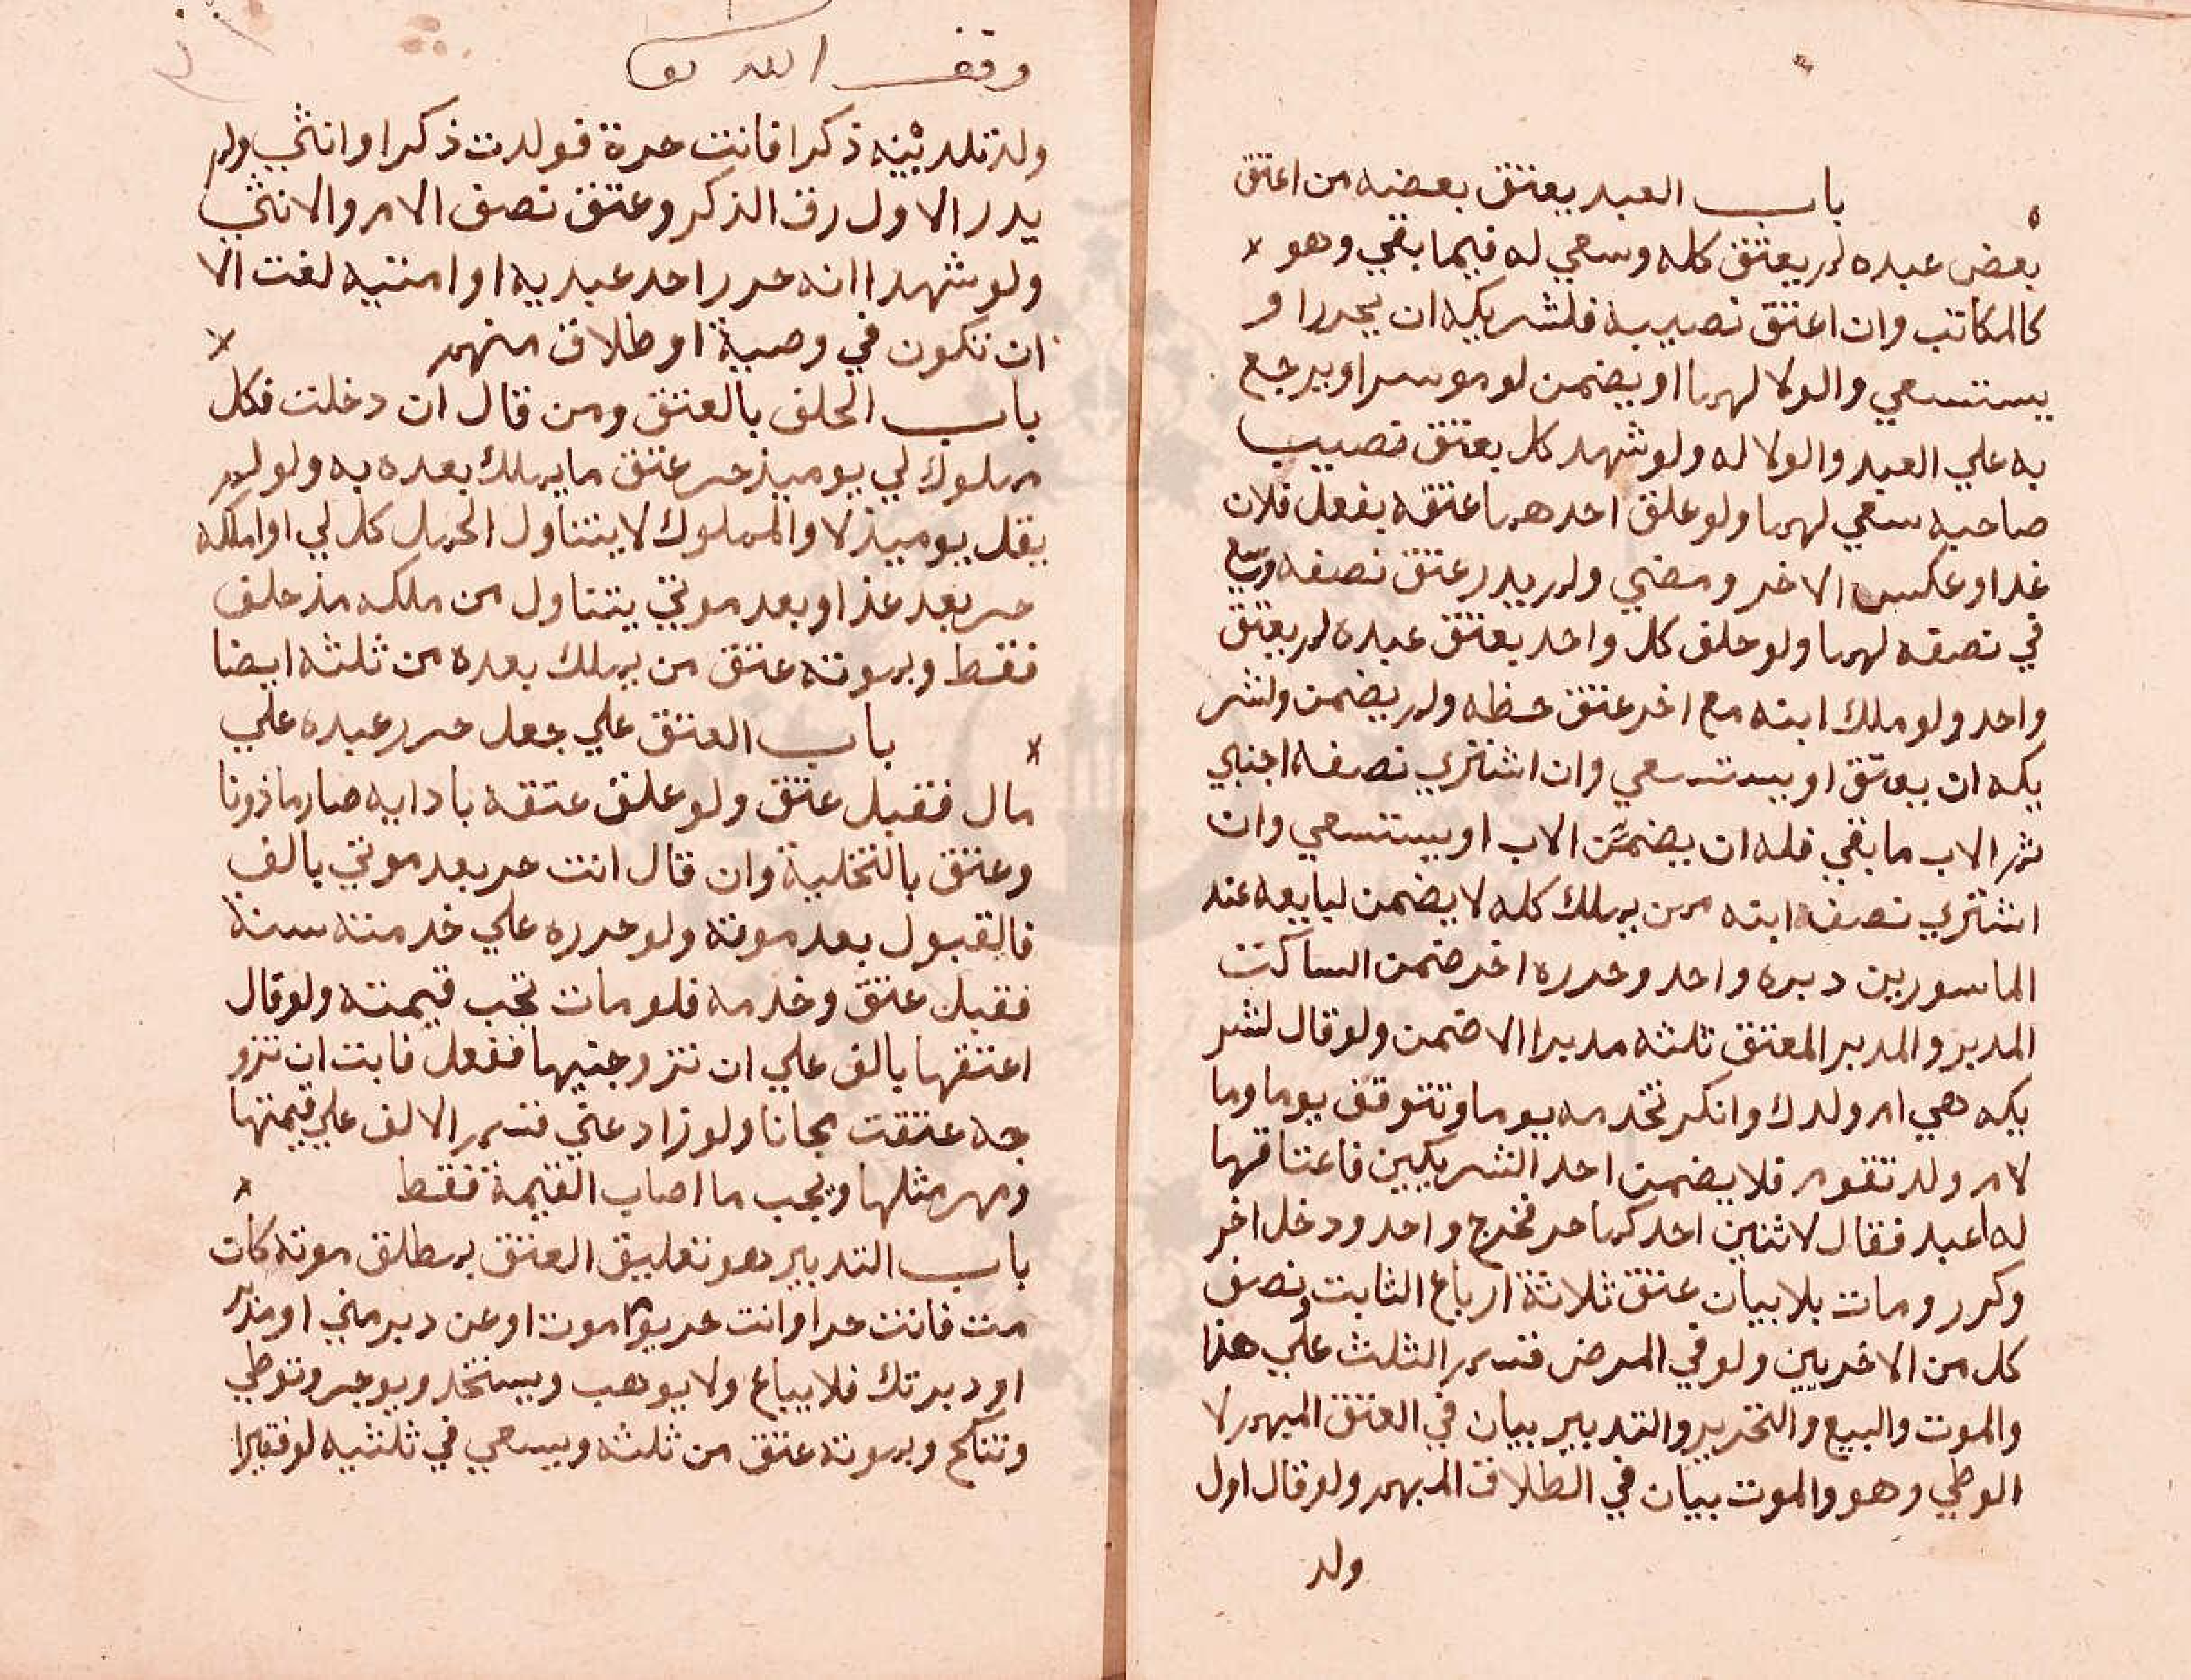 باب العبد يعتق بعضه من اعتق
بعض عبده لم يعتق كله وسعي له فيما بقي وهو
كالمكاتب وان اعتق نصيبه فلشريكه ان يحرر او
يستسعي والولا لهما او يضمن لو موسرا ويرجع
به علي العبد والولا له ولو شهد كل بعتق نصيب
صاحبه سعي لهما ولو علق احدهما عتقه بفعل فلان
غدا وعكس الاخر ومضي ولم يدر عتق نصفه وسع
في نصفه لهما ولو حلف كل واحد بعتق عبده لم يعتق
واحد ولو ملك ابنه مع اخر عتق حظه ولم يضمن ولشر
يكه ان يعتق او يستسعي وان اشتري نصفه اجنبي
ثم الاب ما بقي فله ان يضمن الاب او يستسعي وان
اشتري نصف ابنه ممن يملك كله لا يضمن لبايعه عبد
الماسورين دبره واحد وحرره اخر ضمن الساكت
المدبر والمدبر المعتق ثلثه مدبرا لا ضمن ولو قال لشر
يكه هي ام ولدك وانكر تخدمه يوما وتتوقف يوما وما
لام ولد تقوم فلا يضمن احد الشريكين فاعتاقها
له اعبد فقال لاثنين احدكما حر فخرج واحد ودخل اخر
وكرر ومات بلا بيان عتق ثلاثة ارباع الثابت ونصف
كل من الاخرين ولو في المرض قسم الثلث علي هذا
والموت والبيع والتحرير والتدبير بيان في العتق المبهم لا
الوطي وهو والموت بيان في الطلاق المبهم ولو قال اول
ولد
وقف الله تعا
ولد تلدينه ذكرا فانت حرة فولدت ذكرا وانثي ولم
يدر الاول رق الذكر وعتق نصف الام والانثي
ولو شهدا انه حرر احد عبديه او امتيه لغت الا
ان تكون في وصية او طلاق مبهم
باب الحلف بالعتق ومن قال ان دخلت فكل
مملوك لي يوميذ حر عتق ما يملك بعده به ولو لم
يقل يوميذ لا والمملوك لا يتناول الحمل كل لي او املكه
حر بعد غد او بعد موتي يتناول من ملكه مذ حلف
فقط وبموته عتق من يملك بعده من ثلثه ايضا
باب العتق علي جعل حرر عبده علي
مال فقبل عتق ولو علق عتقه بادايه صار ماذونا
وعتق بالتخلية وان قال انت حر بعد موتي بالف
فالقبول بعد موته ولو حرره علي خدمته سنة
فقبل عتق وخدمه فلو مات تجب قيمته ولو قال
اعتقها بالف علي ان تزوجنيها ففعل فابت ان تزو
جه عتقت مجانا ولو زاد عني قسم الالف علي قيمتها
ومهر مثلها ويجب ما اصاب القيمة فقط
باب التدبير هو تعليق العتق بمطلق موته كان
مت فانت حر او انت حر يوم اموت او عن دبر مني او مدبر
او دبرتك فلا يباع ولا يوهب ويستخدم ويوجر وتوطي
وتنكح وبموته عتق من ثلثه ويسعي في ثلثيه لو فقيرا